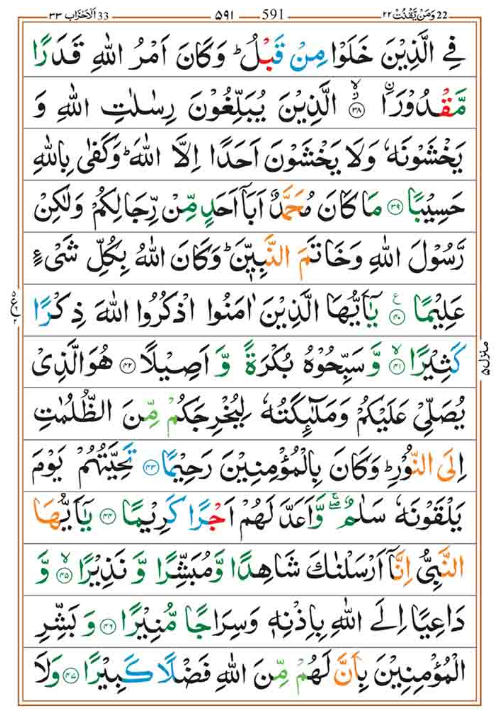 وَمَنۡ يَّقۡنُتۡ ٢٢ 22 ٥٩١ — 591 اَلۡاَحۡزَاب ٣٣ 33
فِى الَّذِيۡنَ خَلَوۡا مِنۡ قَبۡلُ ؕ وَكَانَ اَمۡرُ اللّٰهِ قَدَرًا
مَّقۡدُوۡرَا ۟ ۙ‏ ﴿۳۸﴾ الَّذِيۡنَ يُبَلِّغُوۡنَ رِسٰلٰتِ اللّٰهِ وَ
يَخۡشَوۡنَهٗ وَلَا يَخۡشَوۡنَ اَحَدًا اِلَّا اللّٰهَ ؕ وَكَفٰى بِاللّٰهِ
حَسِيۡبًا ﴿۳۹﴾ مَا كَانَ مُحَمَّدٌ اَبَاۤ اَحَدٍ مِّنۡ رِّجَالِكُمۡ وَلٰكِنۡ
رَّسُوۡلَ اللّٰهِ وَخَاتَمَ النَّبِيّٖنَ ؕ وَكَانَ اللّٰهُ بِكُلِّ شَىۡءٍ
عَلِيۡمًا ﴿۴۰﴾ يٰۤـاَيُّهَا الَّذِيۡنَ اٰمَنُوا اذۡكُرُوا اللّٰهَ ذِكۡرًا
كَثِيۡرًا ۙ ﴿۴۱﴾ وَّ سَبِّحُوۡهُ بُكۡرَةً وَّ اَصِيۡلًا ﴿۴۲﴾ هُوَ الَّذِىۡ
يُصَلِّىۡ عَلَيۡكُمۡ وَمَلٰٓٮِٕكَتُهٗ لِيُخۡرِجَكُمۡ مِّنَ الظُّلُمٰتِ
اِلَى النُّوۡرِ ؕ وَكَانَ بِالۡمُؤۡمِنِيۡنَ رَحِيۡمًا ﴿۴۳﴾ تَحِيَّتُهُمۡ يَوۡمَ
يَلۡقَوۡنَهٗ سَلٰمٌ ۖۚ وَّاَعَدَّ لَهُمۡ اَجۡرًا كَرِيۡمًا ﴿۴۴﴾ يٰۤـاَيُّهَا
النَّبِىُّ اِنَّاۤ اَرۡسَلۡنٰكَ شَاهِدًا وَّمُبَشِّرًا وَّ نَذِيۡرًا ۙ ﴿۴۵﴾ وَّ
دَاعِيًا اِلَى اللّٰهِ بِاِذۡنِهٖ وَسِرَاجًا مُّنِيۡرًا ﴿۴۶﴾ وَ بَشِّرِ
الۡمُؤۡمِنِيۡنَ بِاَنَّ لَهُمۡ مِّنَ اللّٰهِ فَضۡلًا كَبِيۡرًا ﴿۴۷﴾ وَلَا
منزل ۵